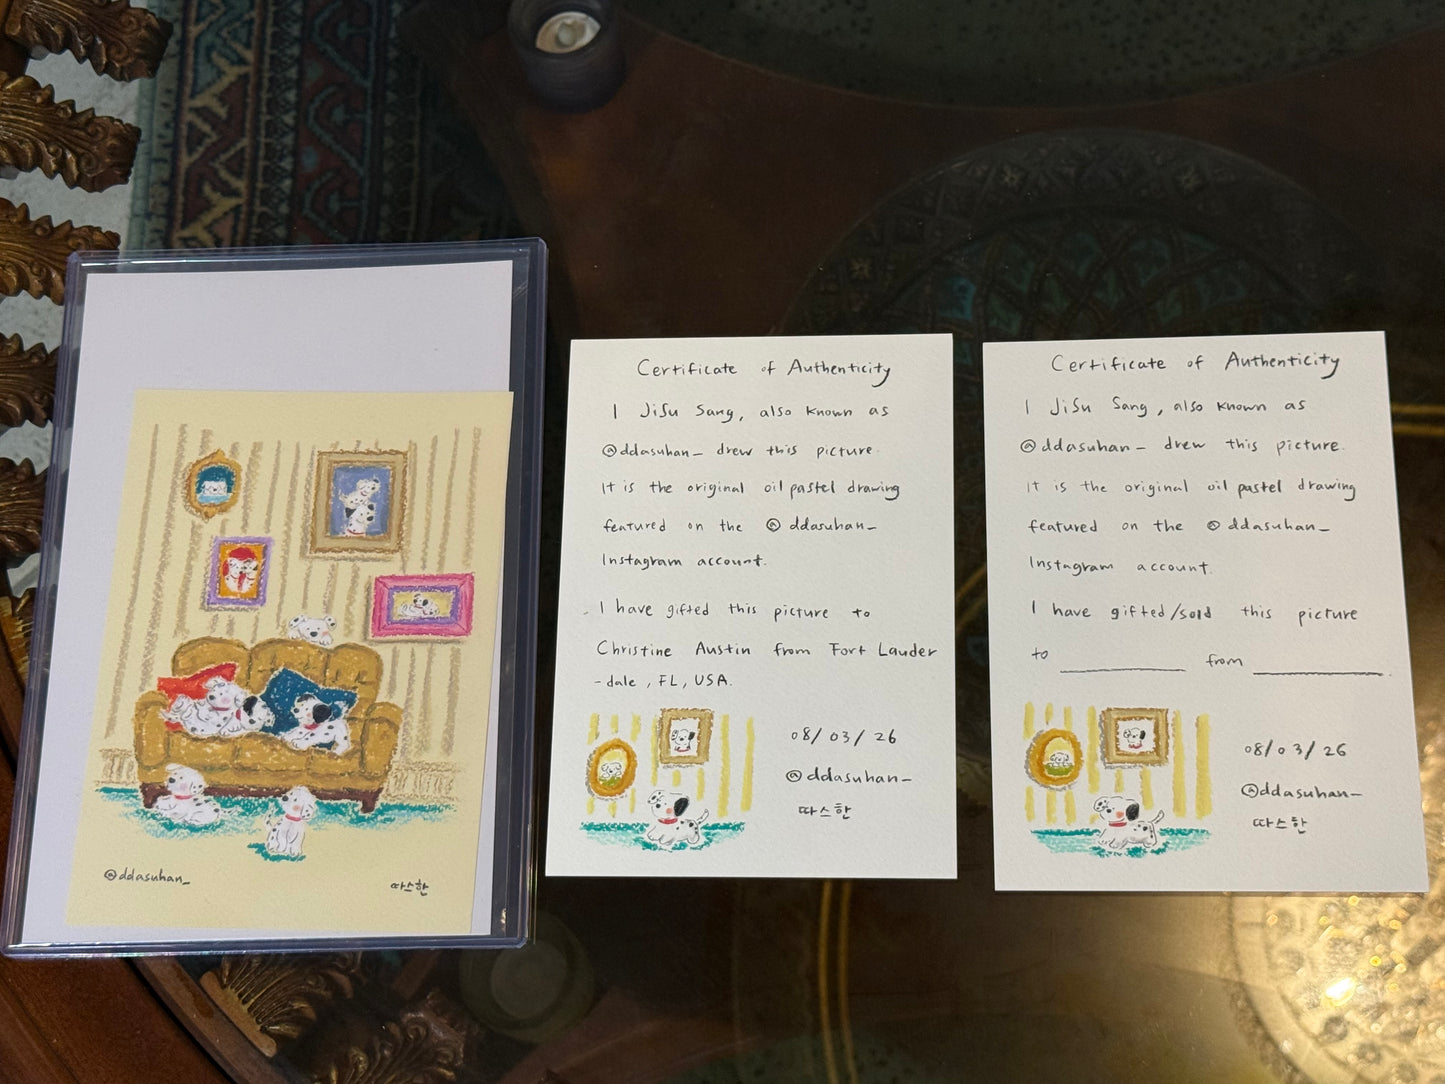 @ddasuhan_
따스한
Certificate of Authenticity
I JiSu Sang, also known as
@ddasuhan_ drew this picture.
It is the original oil pastel drawing
featured on the @ddasuhan_
Instagram account.
I have gifted this picture to
Christine Austin from Fort Lauder
-dale, FL, USA.
08/03/26
@ddasuhan_
따스한
Certificate of Authenticity
I JiSu Sang, also known as
@ddasuhan_ drew this picture.
It is the original oil pastel drawing
featured on the @ddasuhan_
Instagram account.
I have gifted/sold this picture
to __________ from __________.
08/03/26
@ddasuhan_
따스한